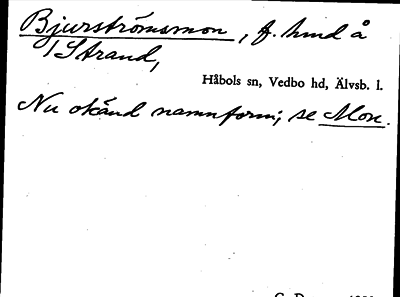 Bjurströmsmon, f. hmd å
/Strand,
Håbols sn, Vedbo hd, Älvsb. l.
Nu okänd namnform; se Mon.